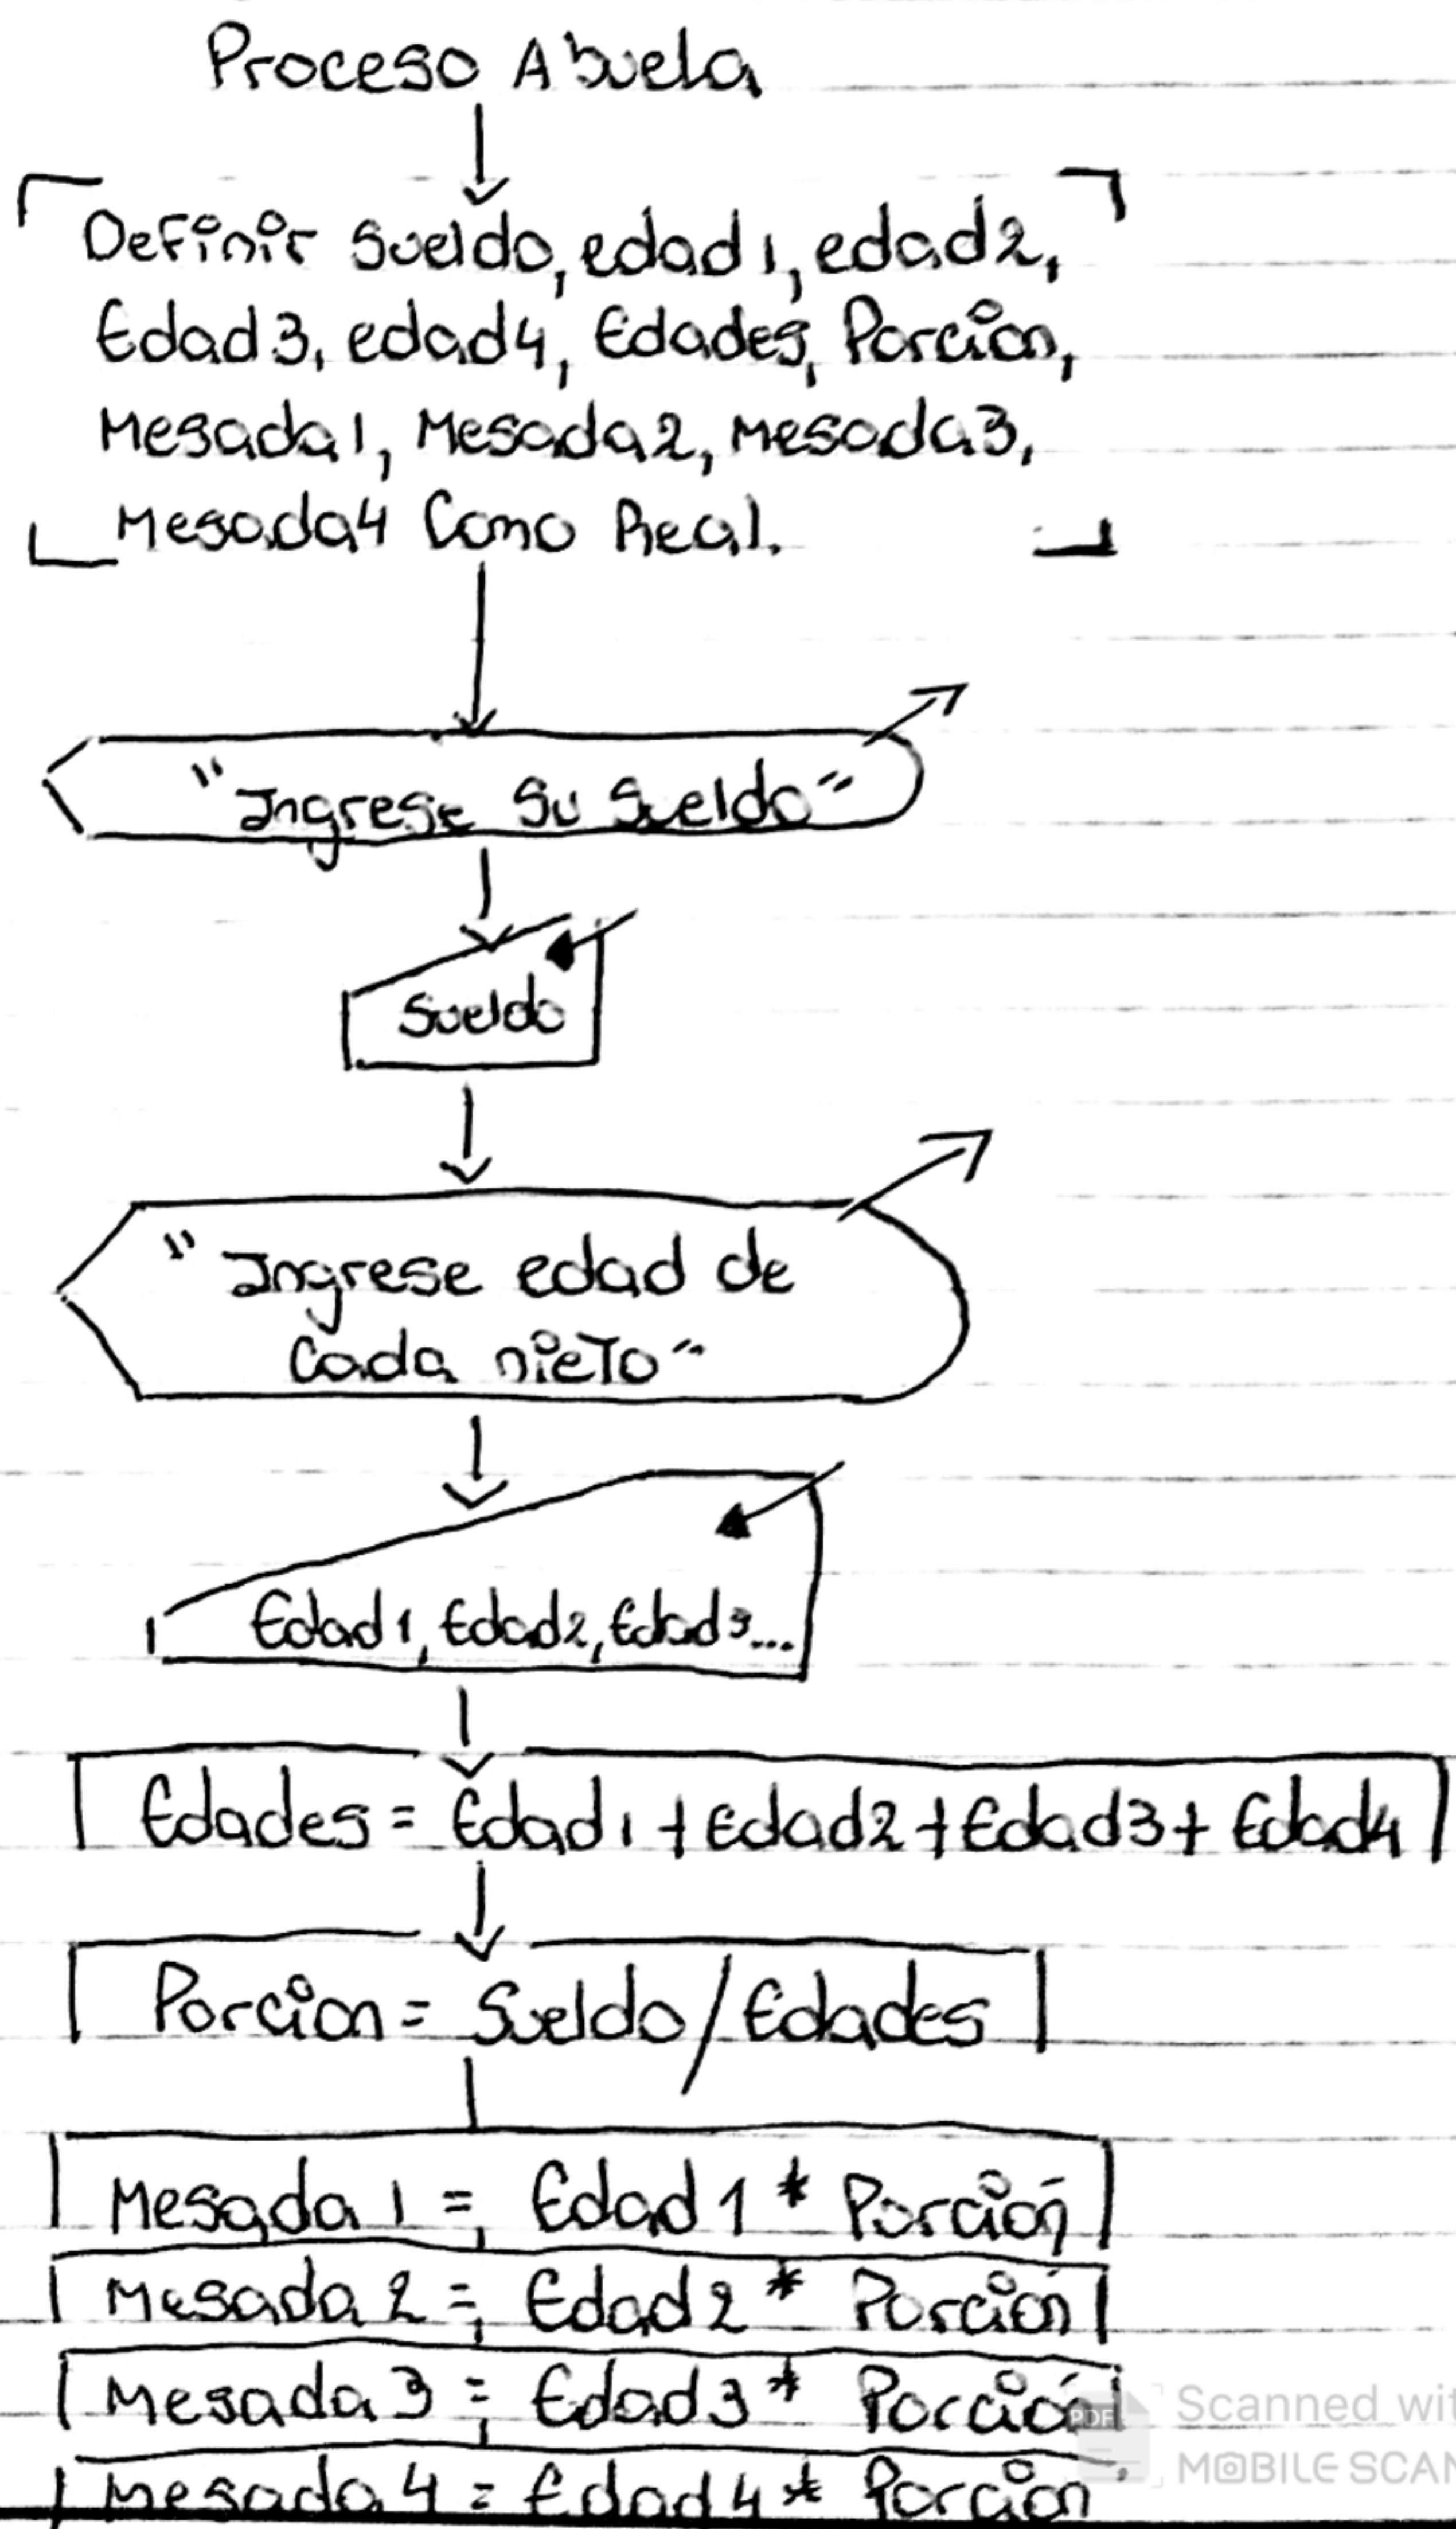 Proceso Abuela
Definir Sueldo, edad1, edad2,
Edad3, edad4, Edades, Porcion,
Mesada1, Mesada2, Mesada3,
Mesada4 Como Real.
"Ingrese su sueldo"
Sueldo
"Ingrese edad de
Cada nieto"
Edad1, Edad2, Edad3...
Edades = Edad1 + Edad2 + Edad3 + Edad4
Porcion = Sueldo / Edades
Mesada 1 = Edad 1 * Porción
Mesada 2 = Edad 2 * Porción
Mesada 3 = Edad 3 * Porción
Mesada 4 = Edad 4 * Porcion
PDF
Scanned wit
MOBILE SCAN